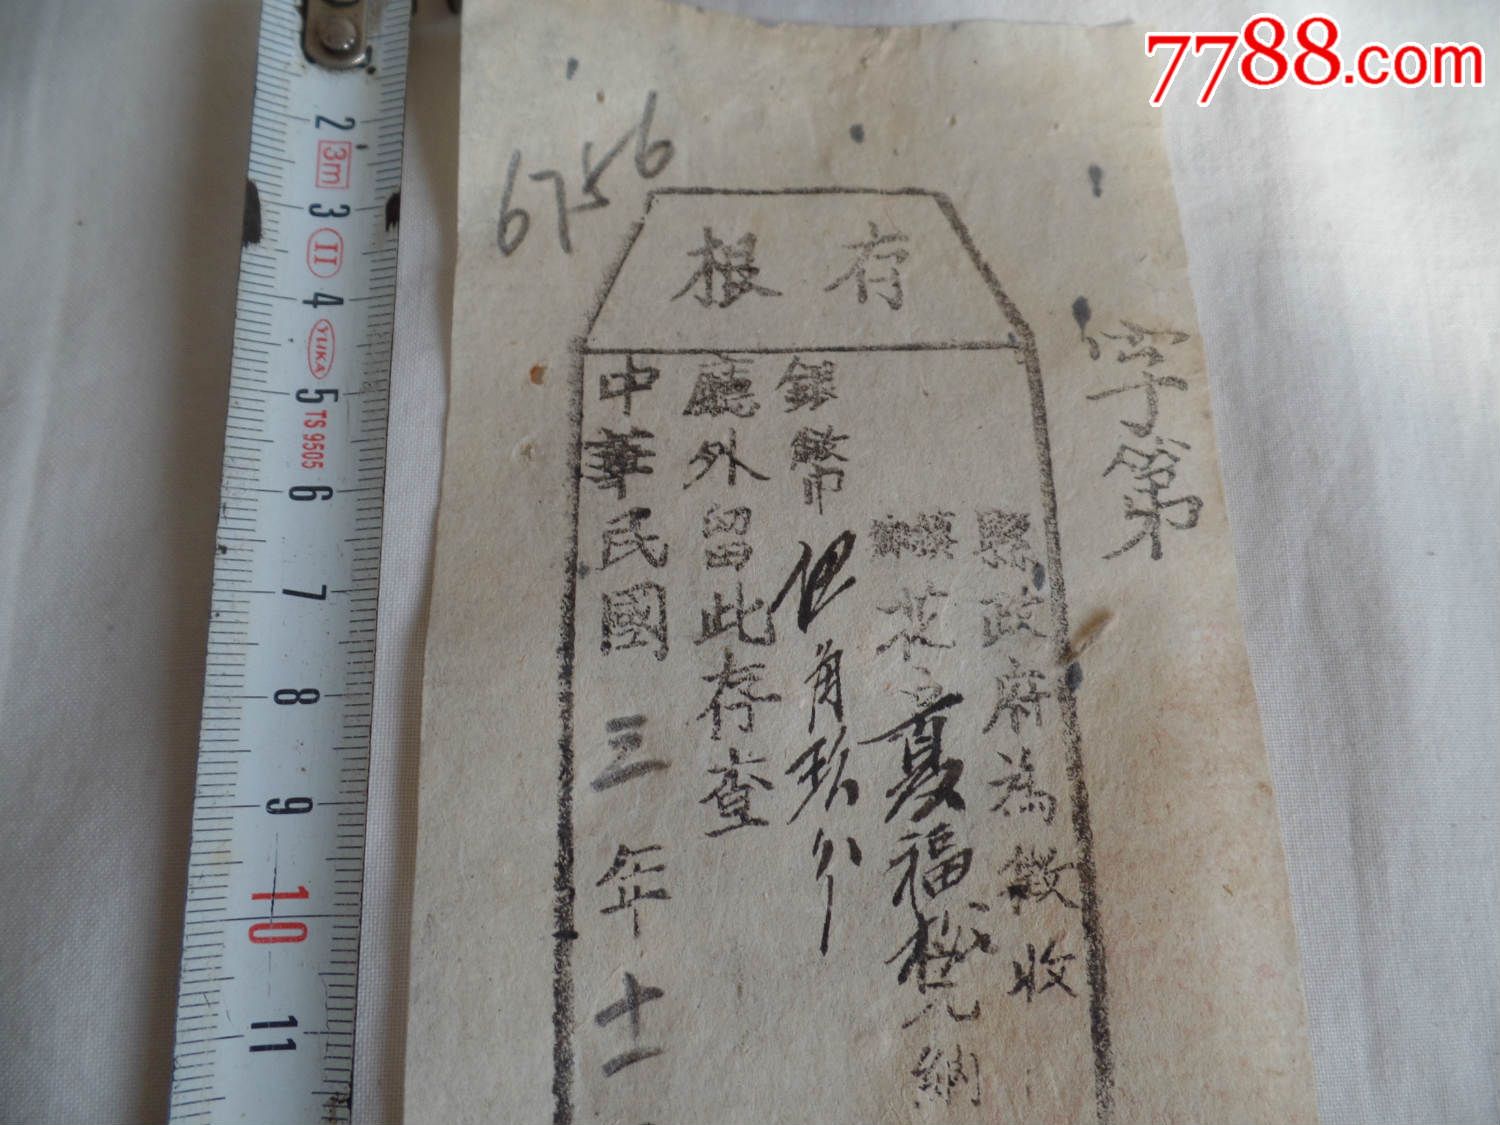 7788.com
6756
存根
字第
縣政府為徵收
花戶夏福松完納
銀幣 角玖分
廳外留此存查
中華民國三年十一
2
3m
3
II
4
YUKA
5
TS 9505
6
7
8
9
10
11